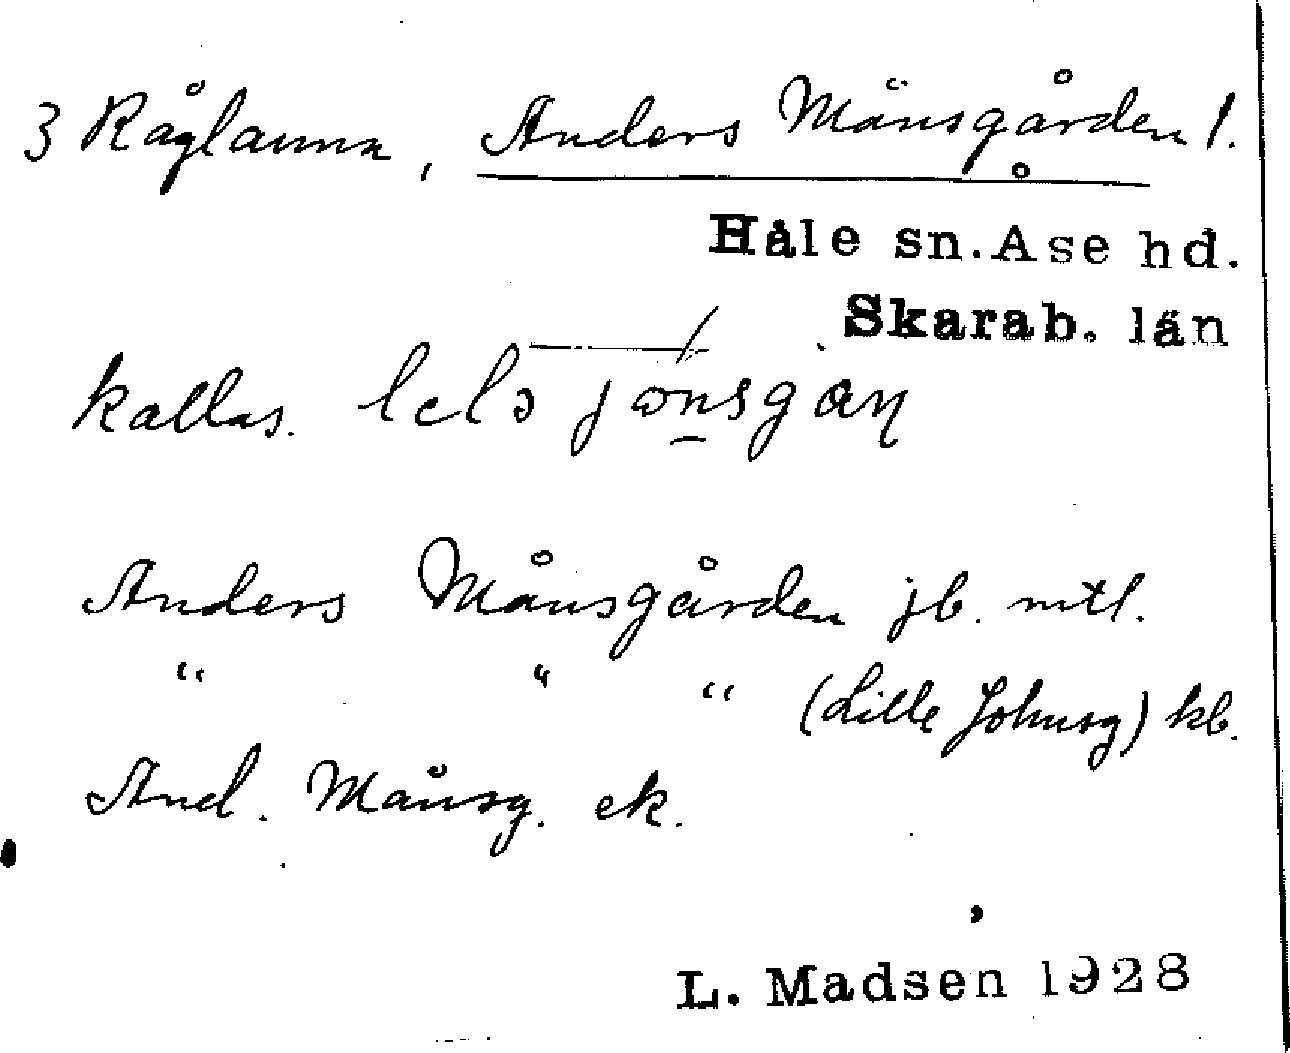 3 Råglanna, Anders Månsgården 1.
Håle sn. Åse hd.
Skarab. län
kallas. lels
Anders Månsgården jb. mtl.
" " " (Lille Johnsg) kb.
And. Månsg. ek.
L. Madsen 1928